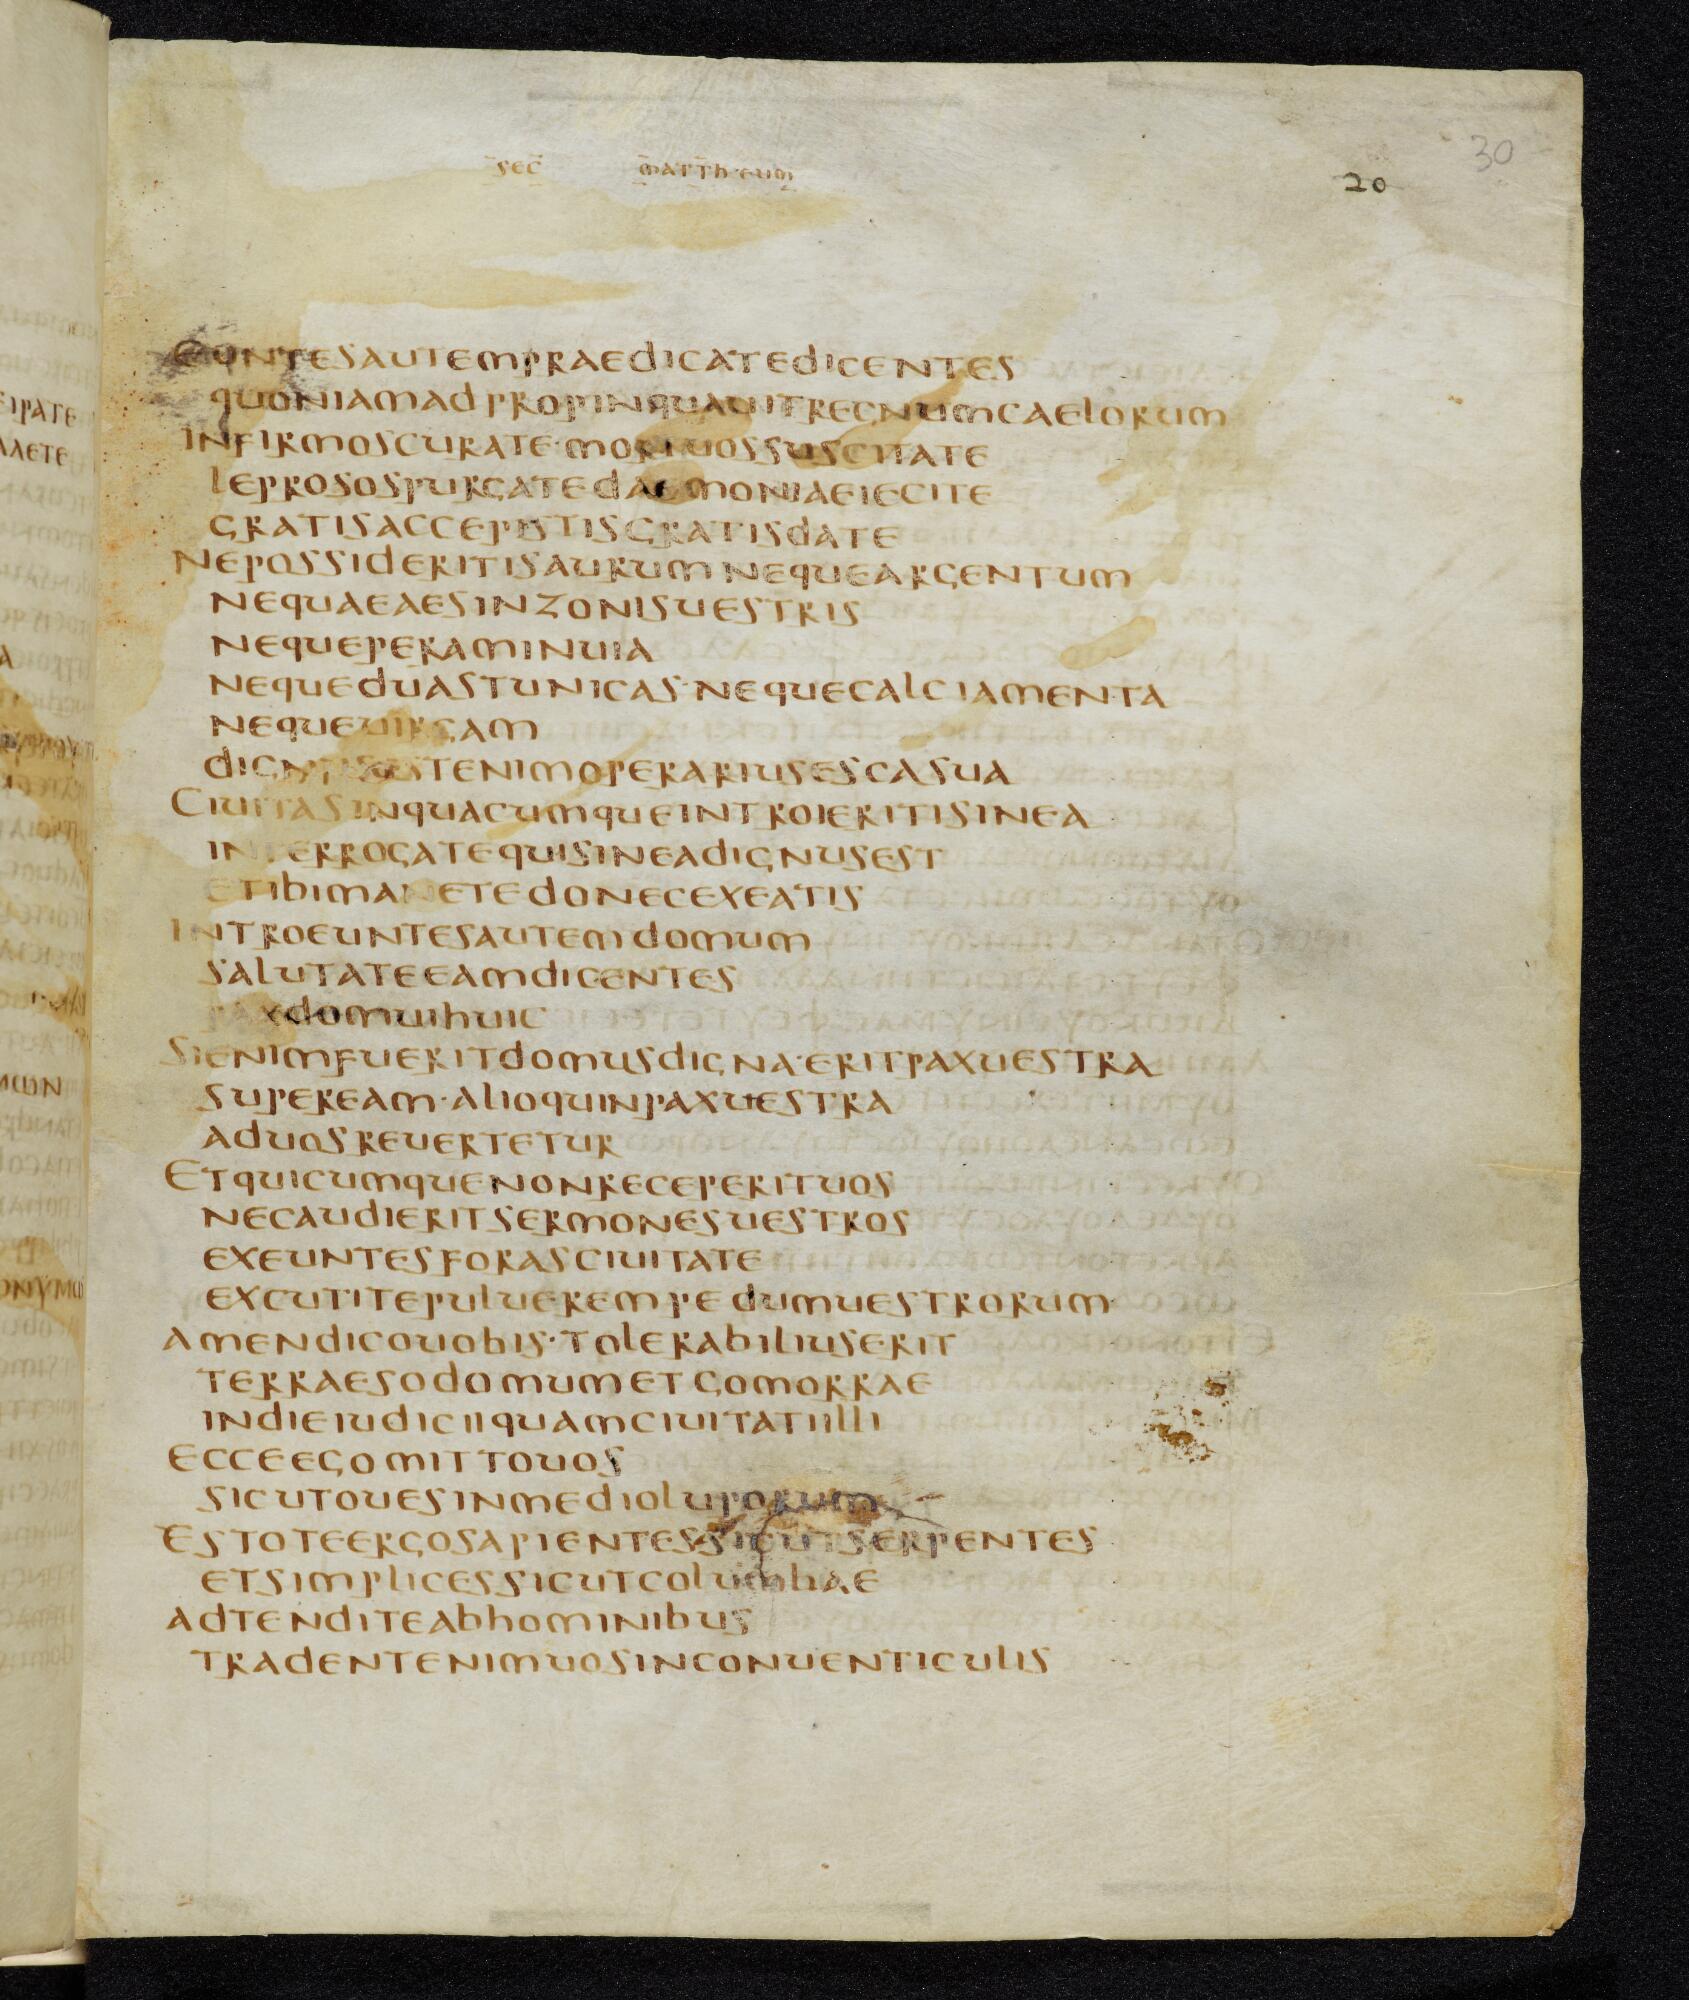 sec mattheum
30
20
euntesautempraedicatedicentes
quoniamadpropinquauitregnumcaelorum
infirmoscurate·mortuossuscitate
leprosospurgatedaemoniaeiecite
gratisaccepistisgratisdate
nepossideritisaurumnequeargentum
nequaeaesinzonisuestris
nequeperaminuia
nequeduastunicas·nequecalciamenta
nequeuirgam
dignusestenimoperariusescasua
ciuitasinquacumqueintroieritisinea
interrogatequisineadignusest
etibimanetedonecexeatis
introeuntesautemdomum
salutateeamdicentes
paxdomuihuic
sienimfueritdomusdigna·eritpaxuestra
supeream·alioquinpaxuestra
aduosreuertetur
etquicumquenonreceperituos
necaudieritsermonesuestros
exeuntesforasciuitate
excutitepuluerempedumuestrorum
amendicouobis·tolerabiliuserit
terraesodomumetgomorrae
indieiudiciiquamciuitatiilli
ecceegomittouos
sicutouesinmedioluporum
estoteergosapientessicutserpentes
etsimplicessicutcolumbae
adtenditeabhominibus
tradentenimuosinconuenticulis